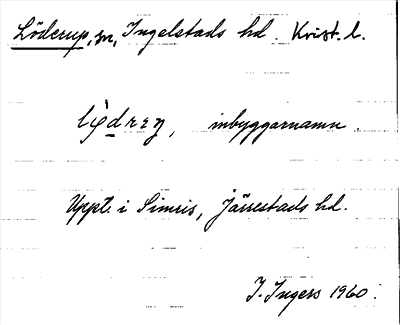 Löderup, sn, Ingelstads hd. Krist. l.
inbyggarnamn
Uppt. i Simris, Järrestads hd.
I. Ingers 1960.